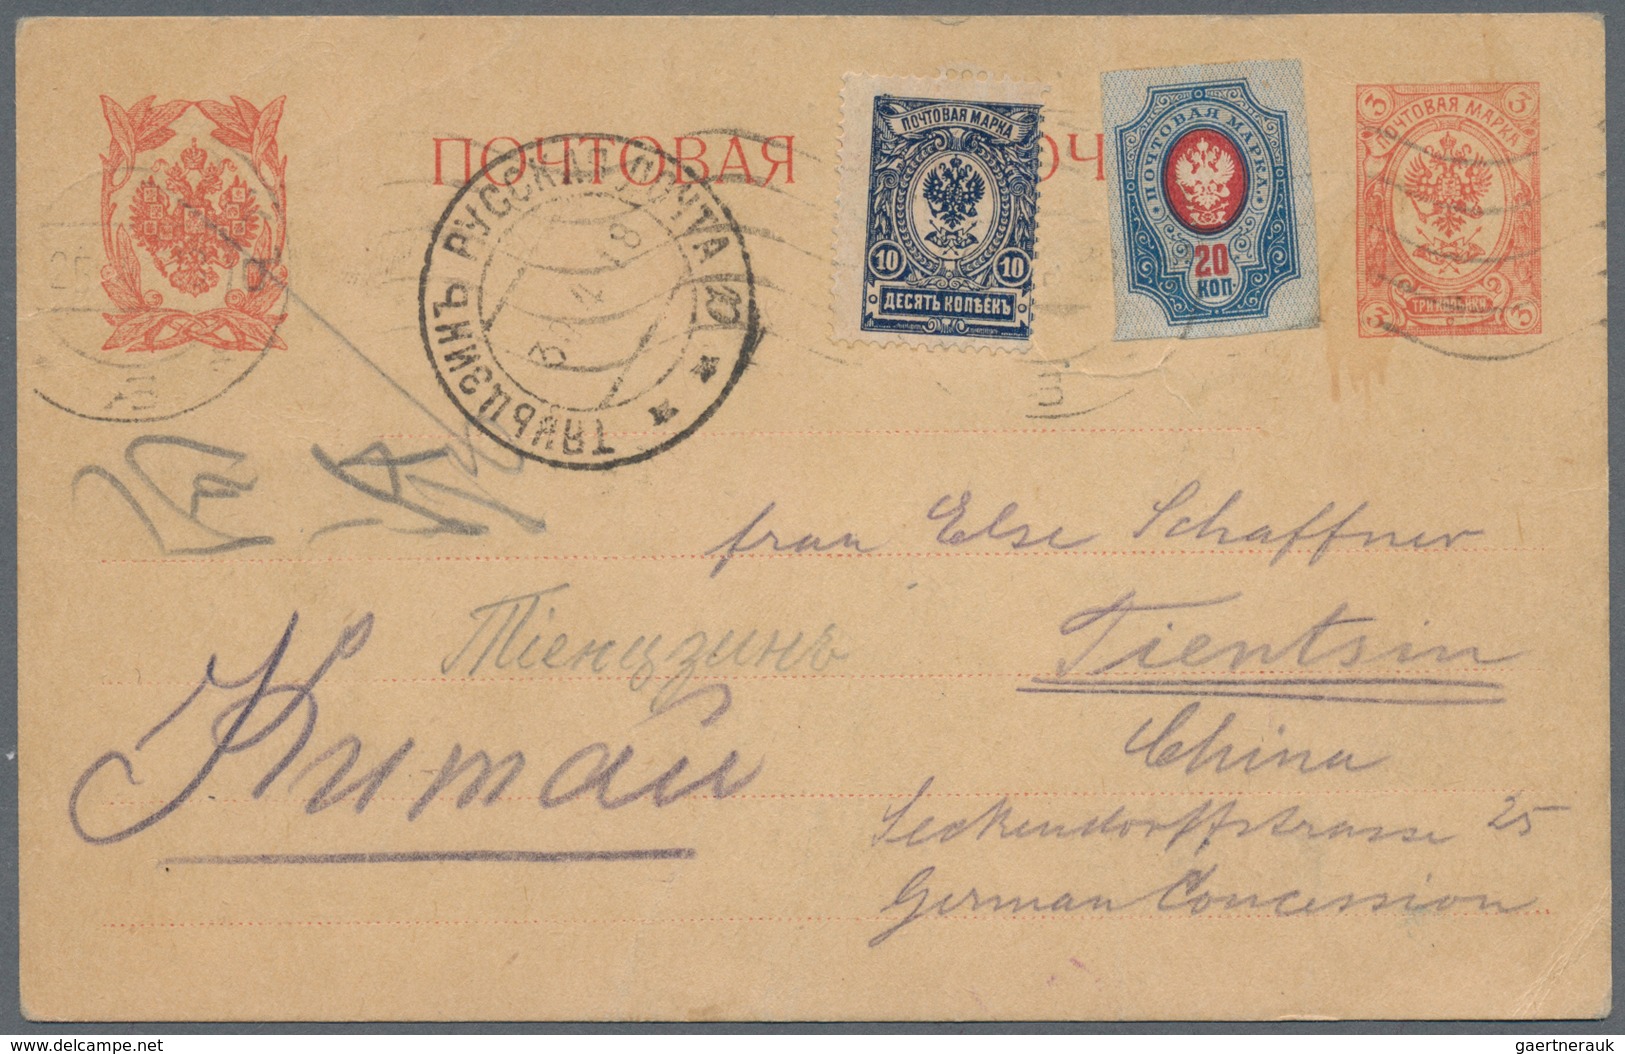 ПОЧТОВАЯ ОЧ
ПОЧТОВАЯ МАРКА
10 10
ДЕСЯТЬ КОПѢЕКЪ
ПОЧТОВАЯ МАРКА
20
КОП.
3 3
ПОЧТОВАЯ МАРКА
ТРИ КОПѢЙКИ
3 3
ТЯНЬЦЗИНЪ РУССКАЯ ПОЧТА
frau Else Schaffner
Тіенцзинъ
Tientsin
Китай
China
Seckendorffstrasse 25
German Concession
www.delcampe.net
gaertnerauk